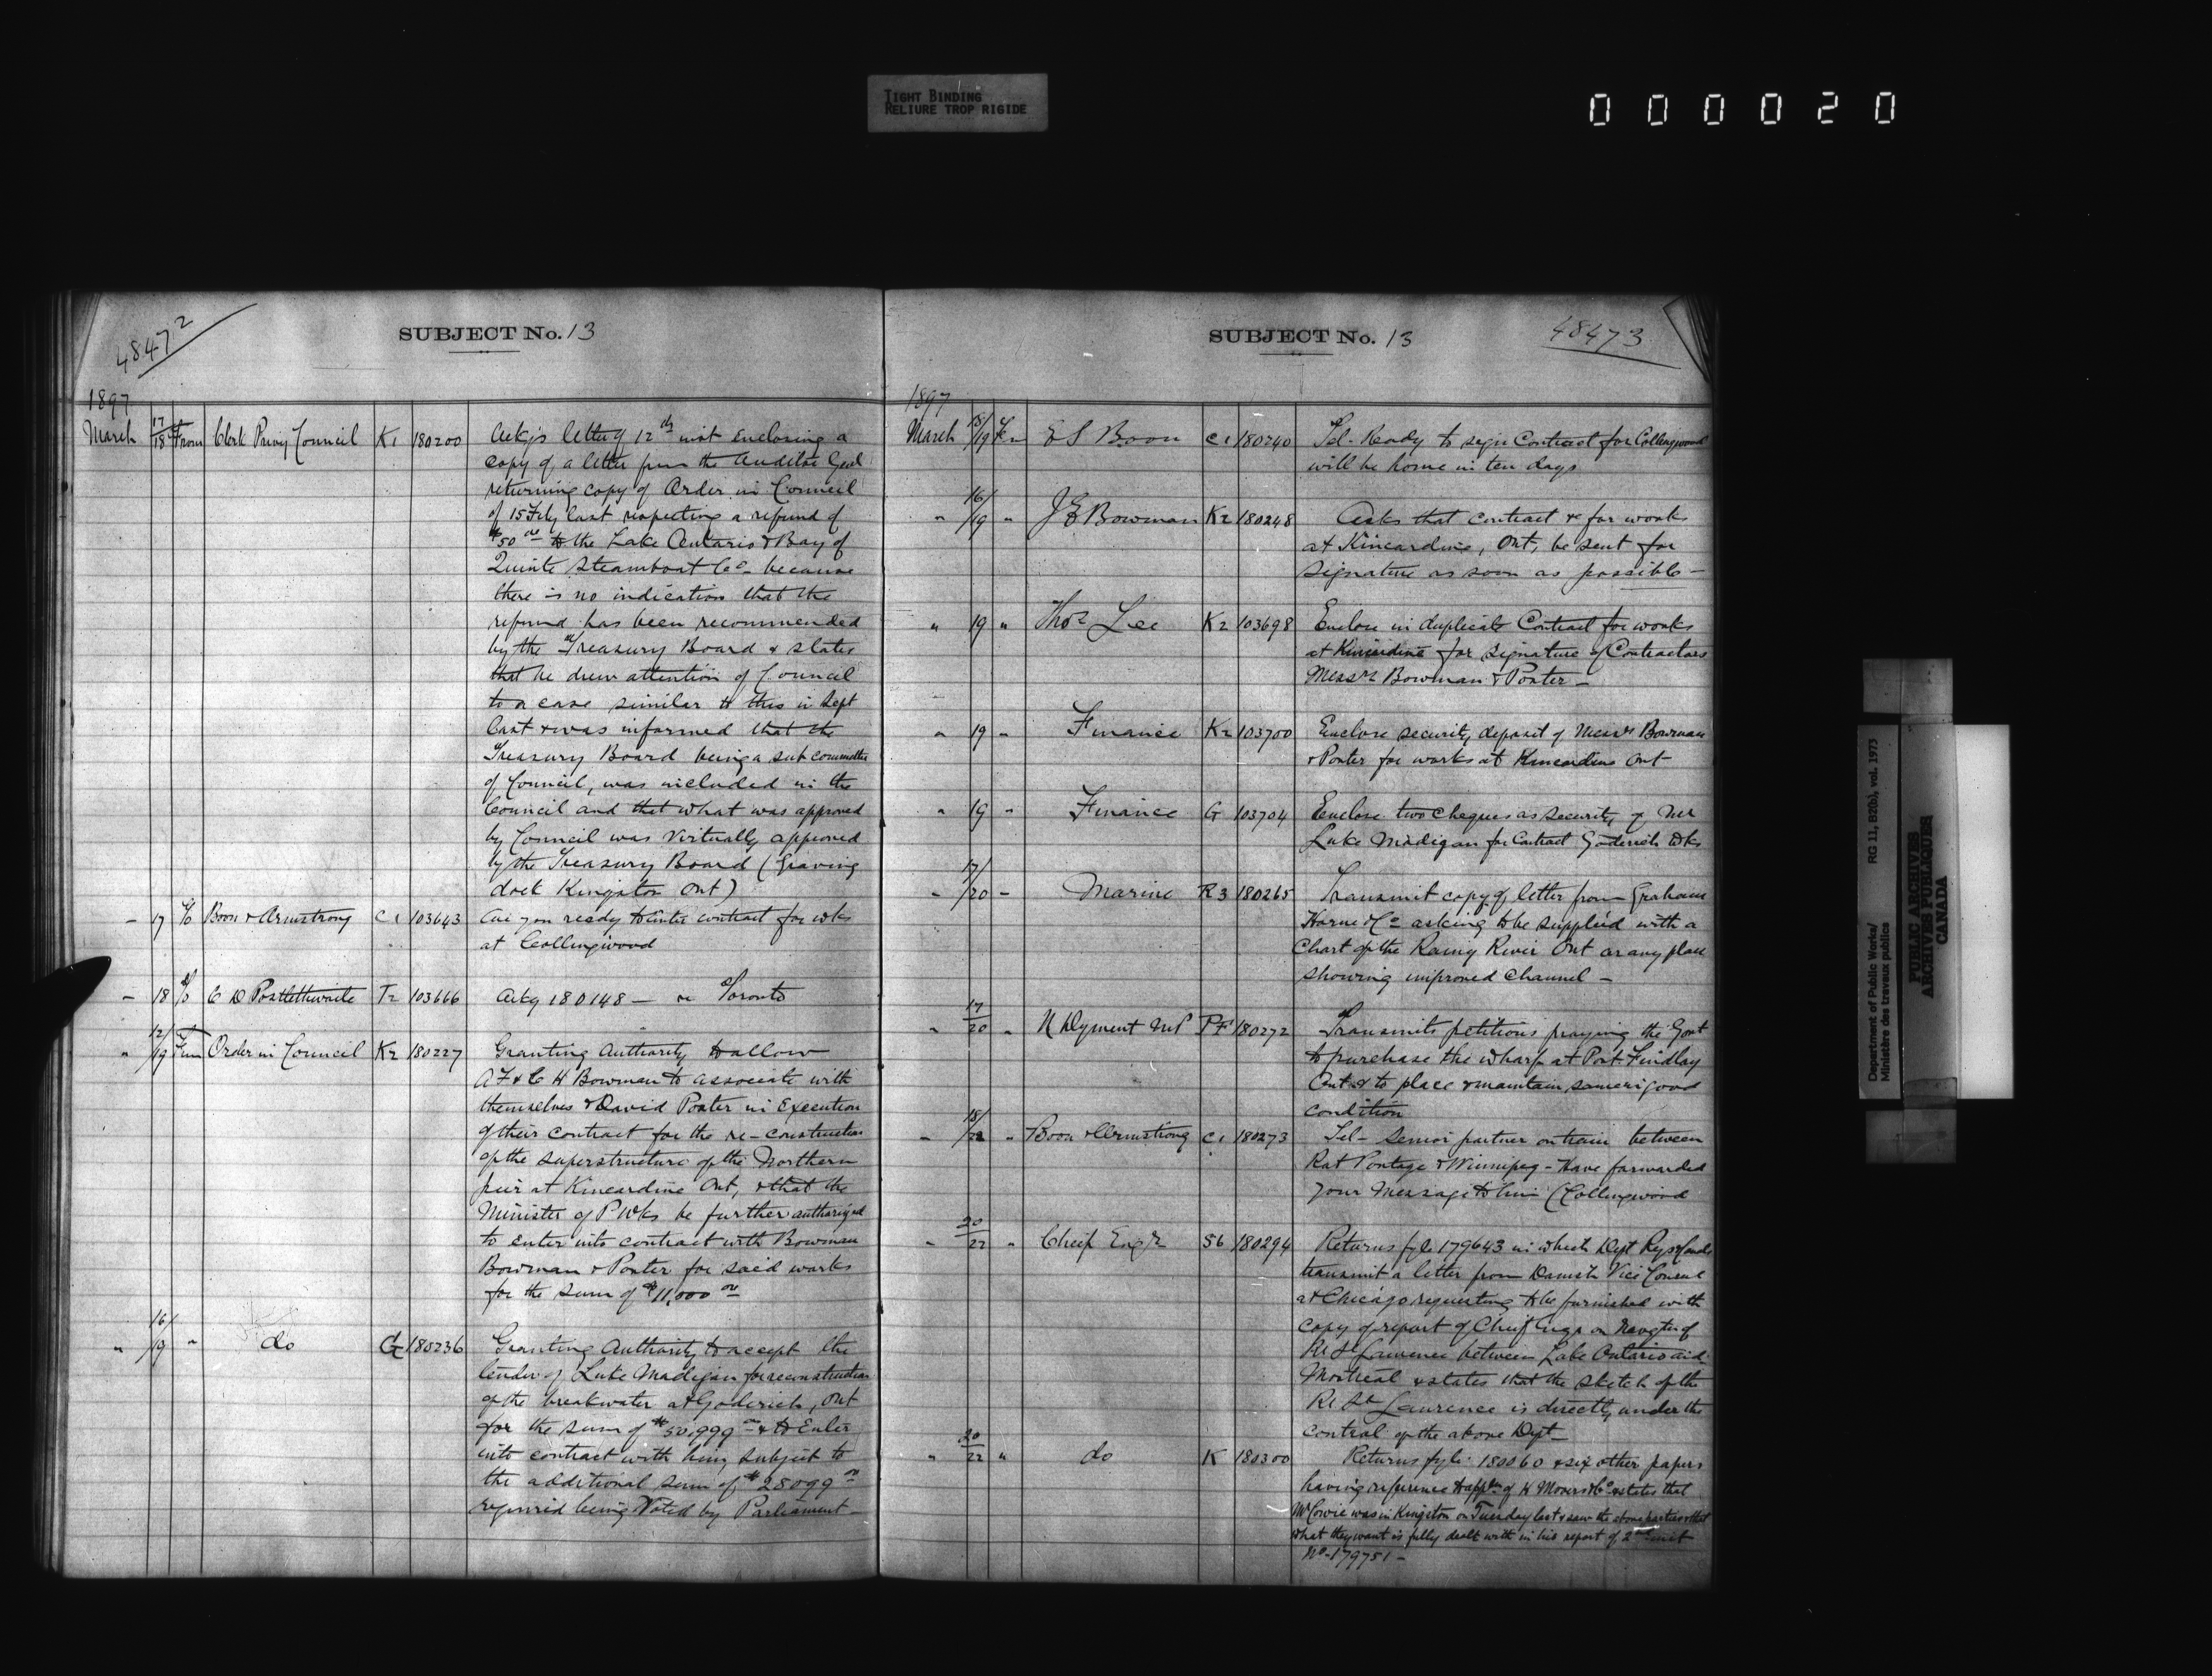 TIGHT BINDING
RELIURE TROP RIGIDE
000020
48472
SUBJECT No. 13
1897
March 17/18 From Clerk Privy Council K1 180200 Ackgs letter of 12th inst enclosing a
copy of a letter from the Auditor Genl
returning copy of Order in Council
of 15 Feby last respecting a refund of
$50 00 to the Lake Ontario & Bay of
Quinte Steamboat Co - because
there is no indication that the
refund has been recommended
by the Treasury Board & states
that he drew attention of Council
to a case similar to this in Sept
last & was informed that the
Treasury Board being a sub committee
of Council, was included in the
Council and that what was approved
by Council was virtually approved
by the Treasury Board (Graving
dock Kingston Ont)
- 17 To Boon & Armstrong C1 103643 Are you ready to enter contract for wks
at Collingwood
- 18 To C D Postlethwaite T2 103666 Ackg 180148 - re Toronto
" 12/19 From Order in Council K2 180227 Granting Authority to allow
A F & C H Bowman to associate with
themselves & David Porter in Execution
of their contract for the re-construction
of the superstructure of the Northern
pier at Kincardine Ont, & that the
Minister of P Wks be further authorized
to enter into contract with Bowman
Bowman & Porter for said works
for the sum of $11,000 00
" 16/19 " do G 180236 Granting Authority to accept the
tender of Luke Madigan for reconstruction
of the breakwater at Goderich, Ont
for the sum of $50,999 00 & to Enter
into contract with him subject to
the additional sum of $28099 00
required being Voted by Parliament -
SUBJECT No. 13
48473
1897
March 18/19 Fm E S Boon C1 180240 Tel- Ready to sign Contract for Collingwood
will be home in ten days
" 16/19 " J E Bowman K2 180248 Asks that contract &c for works
at Kincardine, Ont, be sent for
signature as soon as possible -
" 19 " Thos Lee K2 103698 Enclose in duplicate Contract for works
at Kincardine for signature of Contractors
Messrs Bowman & Porter -
" 19 - Finance K2 103700 Enclose security deposit of Messrs Bowman
& Porter for works at Kincardine Ont
" 19 - Finance G 103704 Enclose two cheques as security of Mr
Luke Madigan for Contract Goderich Wks
- 17/20 - Marine R3 180265 Transmit copy of letter from Graham
Horne & Co asking to be supplied with a
Chart of the Rainy River Ont or any plan
showing improved channel -
" 17/20 " N Dyment MP PF 180272 Transmits petitions praying the Govt
to purchase the wharf at Port Findlay
Ont & to place & maintain same in good
condition
- 18/22 " Boon & Armstrong C1 180273 Tel- Senior partner on train between
Rat Portage & Winnipeg - Have forwarded
your Message to him (Collingwood
" 20/22 " Chief Engr 56 180294 Returns fyle 179643 in which Dept Rys & Canals
transmit a letter from Danish Vice Consul
at Chicago requesting to be furnished with
copy of report of Chief Engr on Navgtn of
Rr St Lawrence between Lake Ontario and
Montreal & states that the sketch of the
Rr St Lawrence is directly under the
control of the above Dept -
" 20/22 " do K 180300 Returns fyle 180060 & six other papers
having reference to appln of H Mooers & Co & states that
Mr Cowie was in Kingston on Tuesday last & saw the above parties & that
what they want is fully dealt with in his report of 2nd inst
No - 179751 -
Department of Public Works/ RG 11, B2(b), vol. 1973
Ministère des travaux publics
PUBLIC ARCHIVES
ARCHIVES PUBLIQUES
CANADA